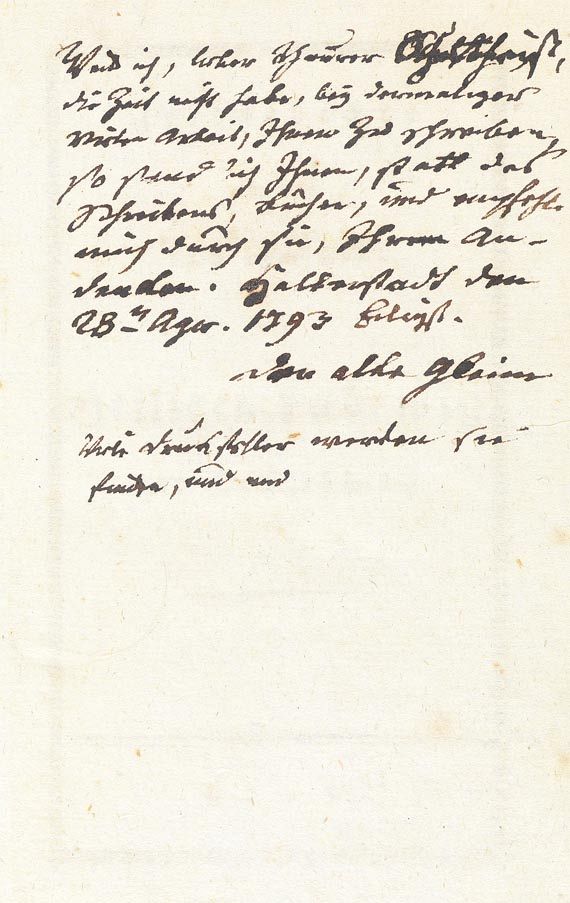 Weil ich, lieber theurer
die Zeit nicht habe, bey dermaliger
vieler Arbeit, Ihnen zu schreiben,
so send ich Ihnen, statt des
Schreibens, Bücher, und empfehle
mich durch sie, Ihrem An-
denken. Halberstadt den
28n 1793 Eiligst.
Der alte Gleim
Viele Druckfehler werden sie
finden, und und